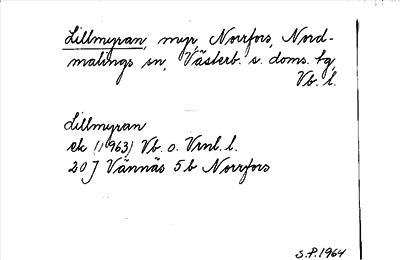 Lillmyran, myr, Norrfors, Nord-
malings sn, Västerb. s. doms. tg,
Vb. l.
Lillmyran
ek (1963) Vb. o. Vrnl. l.
20 J Vännäs 5b Norrfors
S.P. 1964